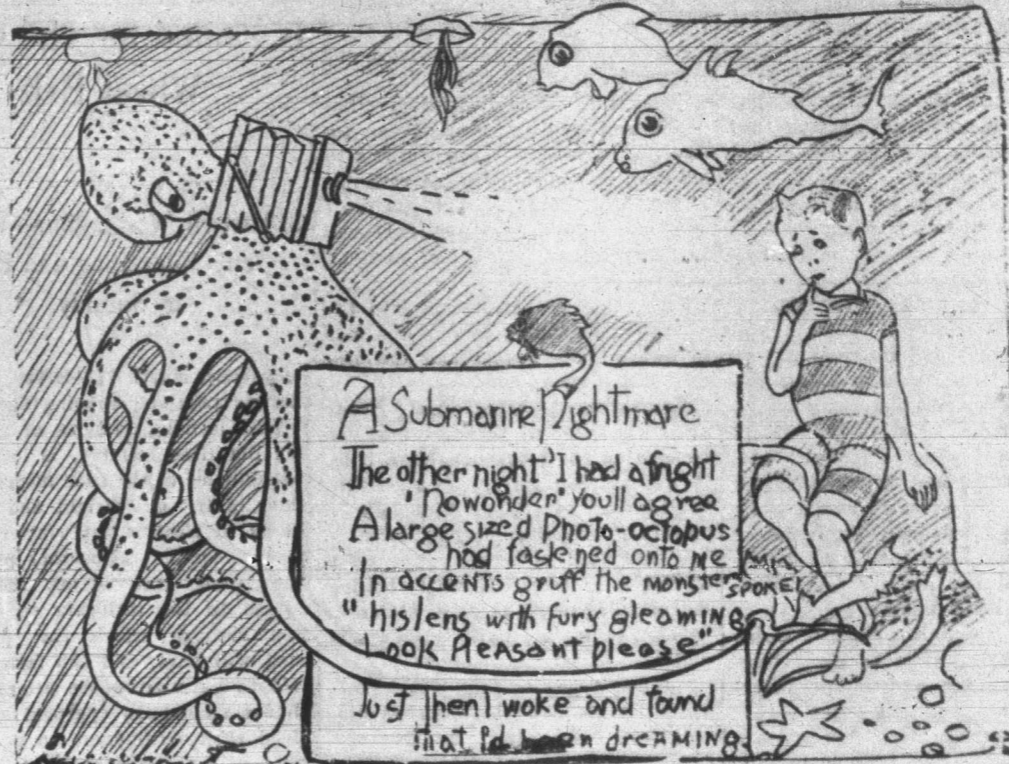 A Submarine Nightmare
The other night I had a fright
"No wonder" youll agree
A large sized Photo-octopus
had fastened onto me
In accents gruff the monster SPOKE
"his lens with fury gleaming
Look Pleasant please"
Just then I woke and found
that I'd been dreaming